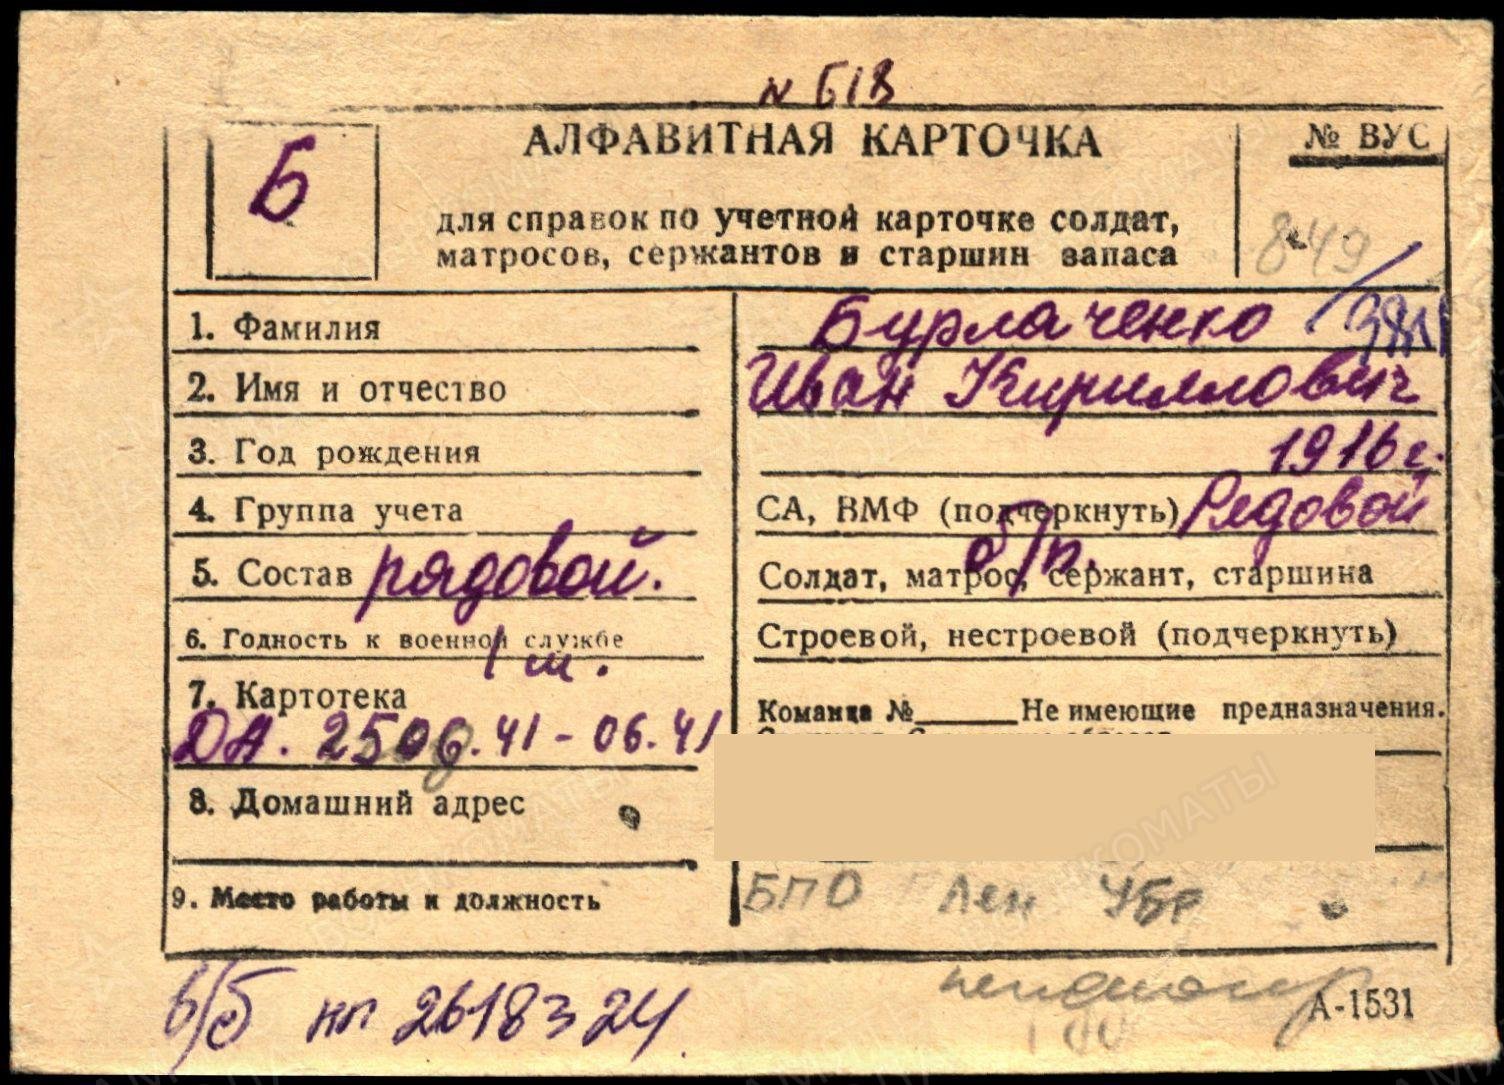 № 618
Б
АЛФАВИТНАЯ КАРТОЧКА
№ ВУС
для справок по учетной карточке солдат,
матросов, сержантов и старшин запаса
849
1. Фамилия Бурлаченко
2. Имя и отчество Иван Кириллович
3. Год рождения 1916 г.
4. Группа учета СА, ВМФ (подчеркнуть) Рядовой
5. Состав рядовой. Солдат, матрос, сержант, старшина
б/п.
6. Годность к военной службе Строевой, нестроевой (подчеркнуть)
7. Картотека Команда № Не имеющие предназначения.
ДА. 06.41 - 06.41
8. Домашний адрес
9. Место работы и должность БПО Лен УБР
в/б нп 2618324
пенсионер
А-1531